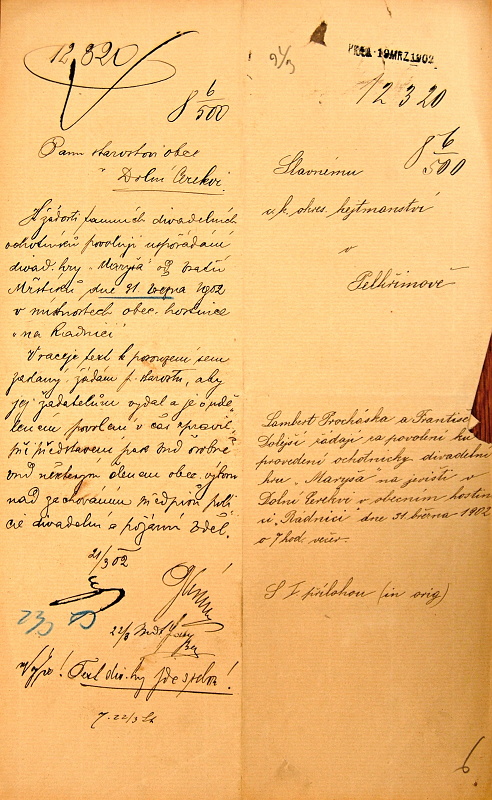 12820
8 6/500
Panu starostovi obce
v Dolní Cerekvi.
K žádosti tamních divadelních
ochotníků povoluji uspořádání
divad. hry „Maryša" od bratří
Mrštíků dne 31. března 1902
v místnostech obec. hostince
„na Radnici"
Vraceje text k posouzení sem
zadaný žádám p. starostu, aby
jej žadatelům vydal a je o udě-
leném povolení v čas zpravil,
při představení pak buď osobně
buď některým členem obec. výboru
nad zachováním předpisů poli-
cie divadelní a požární bděl.
21/3 02
22/3
Text div. hry jde spolu!
7. 22/3
21/3
PRÄS. 19 MRZ 1902
12320
8 6/500
Slavnému
c. k. okres. hejtmanství
v
Pelhřimově
Lambert Procháska a Františ.
Dolejší žádají za povolení ku
provedení ochotnicky divadelní
hru „Maryša na jevišti v
Dolní Cerekvi v obecním hostin
u „Radnici" dne 31 března 1902
o 7 hod. večer.
S 1 přílohou (in orig)
6